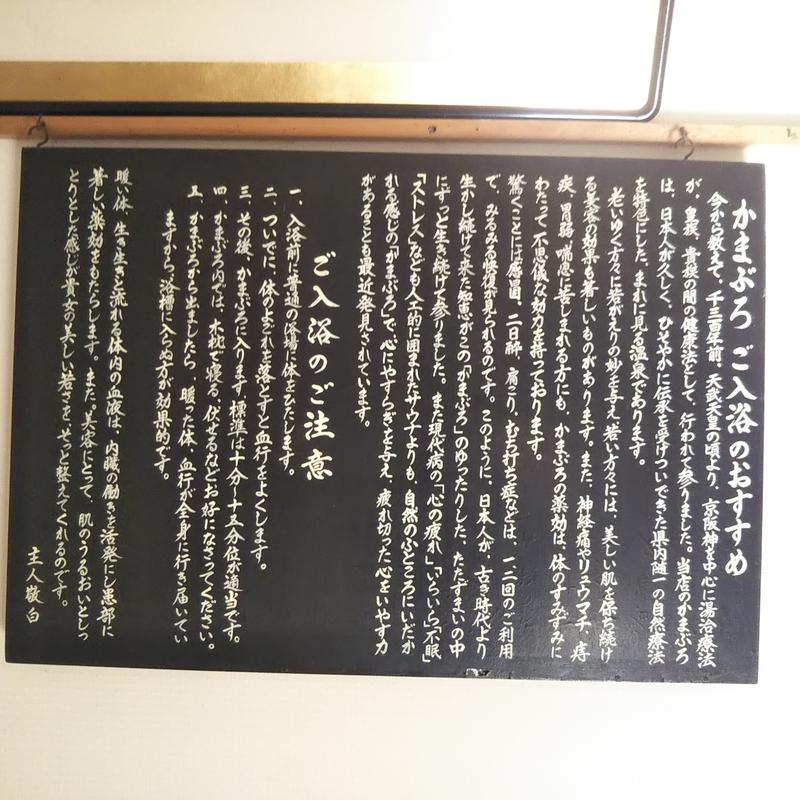 かまぶろ ご入浴のおすすめ
今から数えて、千三百年前。天武天皇の頃より、京阪神を中心に湯治療法
が、皇族、貴族の間の健康法として、行われて参りました。当店のかまぶろ
は、日本人が久しく、ひそやかに伝家を受けついできた県内随一の自然療法
を特色にした、まれに見る温泉であります。
老いゆく方々に若がえりの妙を与え、若い方々には、美しい肌を保ち続け
る美容の効果も著しいものがあります。また、神経痛やリュウマチ、痔
疾、胃弱、喘息に苦しまれる方にも、かまぶろの薬効は、体のすみずみに
わたって不思議な効力を持っております。
驚くことには感冒、二日酔、肩こり、むち打ち症などは、一、二回のご利用
で、みるみる快復が見られるのです。このように、日本人が、古き時代より
生かし続けて来た知恵がこの「かまぶろ」のゆったりした、たたずまいの中
にずっと生き続けて参りました。また現代病の「心の疲れ」「いらいら」「不眠」
「ストレス」なども人工的に囲まれたサウナよりも、自然のふところにいだか
れる感じの「かまぶろ」で、心にやすらぎを与え、疲れ切った心をいやす力
があることも最近発見されています。
ご入浴のご注意
一、入浴前に普通の浴場に体をひたします。
二、ついでに、体のよごれを落とすと血行をよくします。
三、その後、かまぶろに入ります。標準は十分〜十五分位が適当です。
四、かまぶろ内では、木枕で寝る、伏せるなどお好になさってください。
五、かまぶろから出ましたら、暖った体、血行が全身に行き届いてい
ますから、浴槽に入らぬ方が効果的です。
暖い体、生き生きと流れる体内の血液は、内臓の働きを活発にし患部に
著しい薬効をもたらします。また。美容にとって、肌のうるおいとしっ
とりとした感じが貴女の美しい若さを、そっと整えてくれるのです。
主人敬白